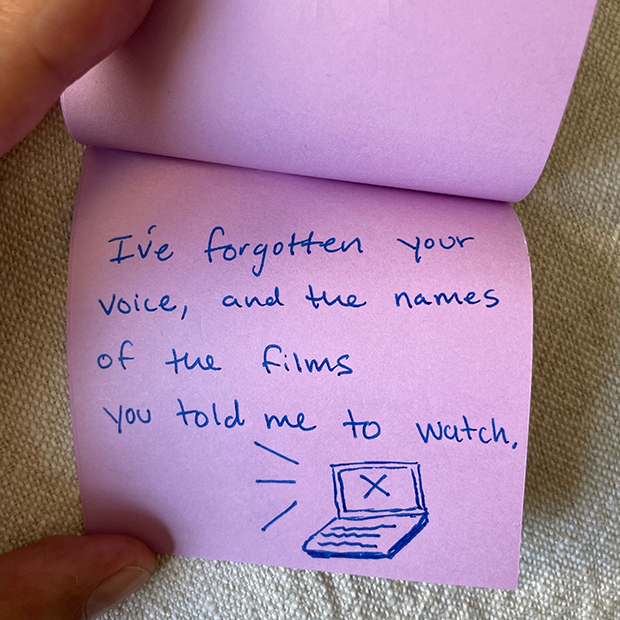 I've forgotten your
voice, and the names
of the films
you told me to watch.